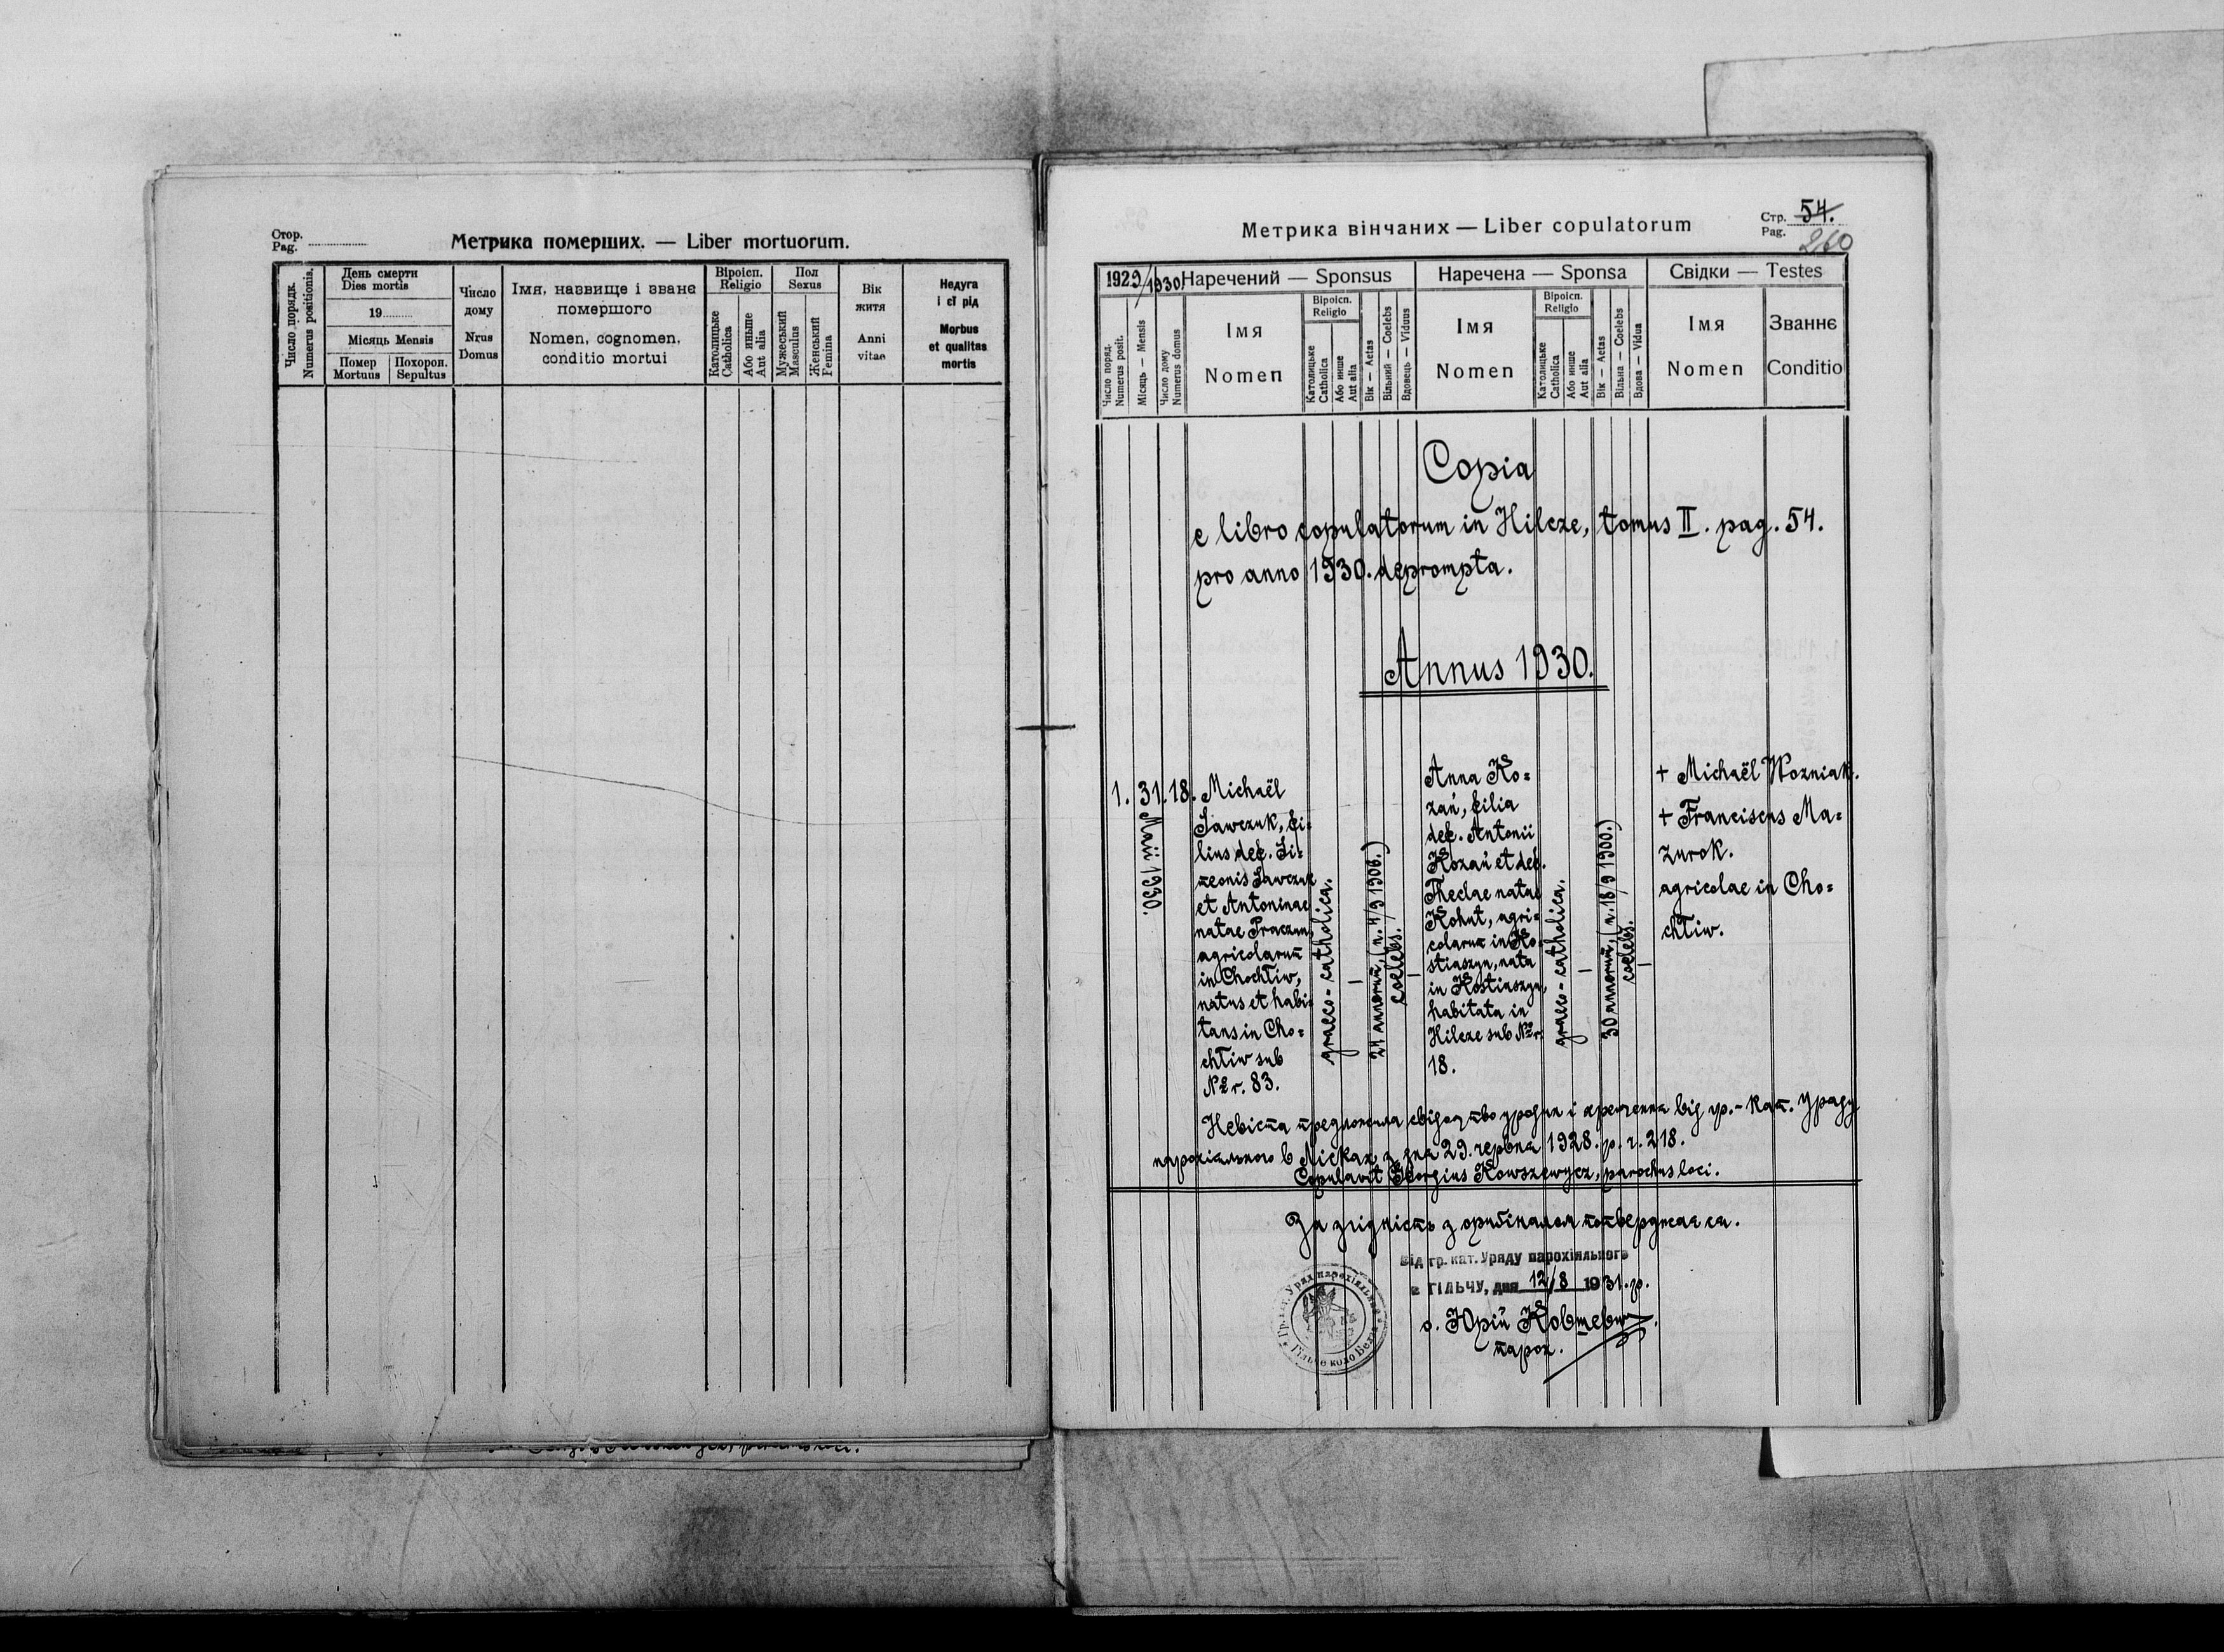 Стор.
Pag.
Метрика померших. — Liber mortuorum.
Число порядк.
Numerus positionis.
День смерти
Dies mortis
19
Місяць Mensis
Помер
Mortuus
Похорон.
Sepultus
Число
дому
Nrus
Domus
Імя, назвище і званє
помершого
Nomen, cognomen,
conditio mortui
Віроісп.
Religio
Католицьке
Catholica
Або иньше
Aut alia
Пол
Sexus
Мужеський
Masculus
Женський
Femina
Вік
житя
Anni
vitae
Недуга
і єї рід
Morbus
et qualitas
mortis
Метрика вінчаних — Liber copulatorum
Стр.
Pag.
54.
260
1929/1930
Наречений — Sponsus
Наречена — Sponsa
Свідки — Testes
Число поряд.
Numerus posit.
Місяць — Mensis
Число дому
Numerus domus
Імя
Nomen
Віроісп.
Religio
Католицьке
Catholica
Або инше
Aut alia
Вік — Aetas
Вільний — Coelebs
Вдовець — Viduus
Імя
Nomen
Віроісп.
Religio
Католицьке
Catholica
Або инше
Aut alia
Вік — Aetas
Вільна — Coelebs
Вдова — Vidua
Імя
Nomen
Званнє
Conditio
Copia
e libro copulatorum in Hilcze, tomus II. pag. 54.
pro anno 1930. deprompta.
Annus 1930.
1.
31.
Maii 1930.
18.
Michaël
Sawczuk, fi=
lius def. Si=
meonis Sawczuk
et Antoninae
natae Praczun,
agricolarum
in Chochtiw,
natus et habi=
tans in Cho=
chtiw sub
№ r. 83.
graeco-catholica.
—
24 annorum, (n. 4/9 1906.)
coelebs.
—
Anna Ko=
zań, filia
def. Antonii
Kozań et def.
Theclae natae
Kohut, agri=
colarum in Ko=
stiaszyn, nata
in Kostiaszyn,
habitata in
Hilcze sub № r.
18.
graeco-catholica.
—
30 annorum, (n. 18/9 1900.)
coelebs.
—
+ Michaël Wozniak.
+ Franciscus Ma=
zurok.
agricolae in Cho=
chtiw.
Невіста предложила свідоцтво уродин і крещення від гр.-кат. Уряду
парохіяльного в Лісках з дня 29. червня 1928. р. ч. 218.
Copulavit Georgius Kowszewycz, parochus loci.
За згідність з оригіналом потверджаєся.
Від гр. кат. Уряду парохіяльного
в ГІЛЬЧУ, дня 12/8 1931. р.
о. Юрій Ковшевич.
парох.